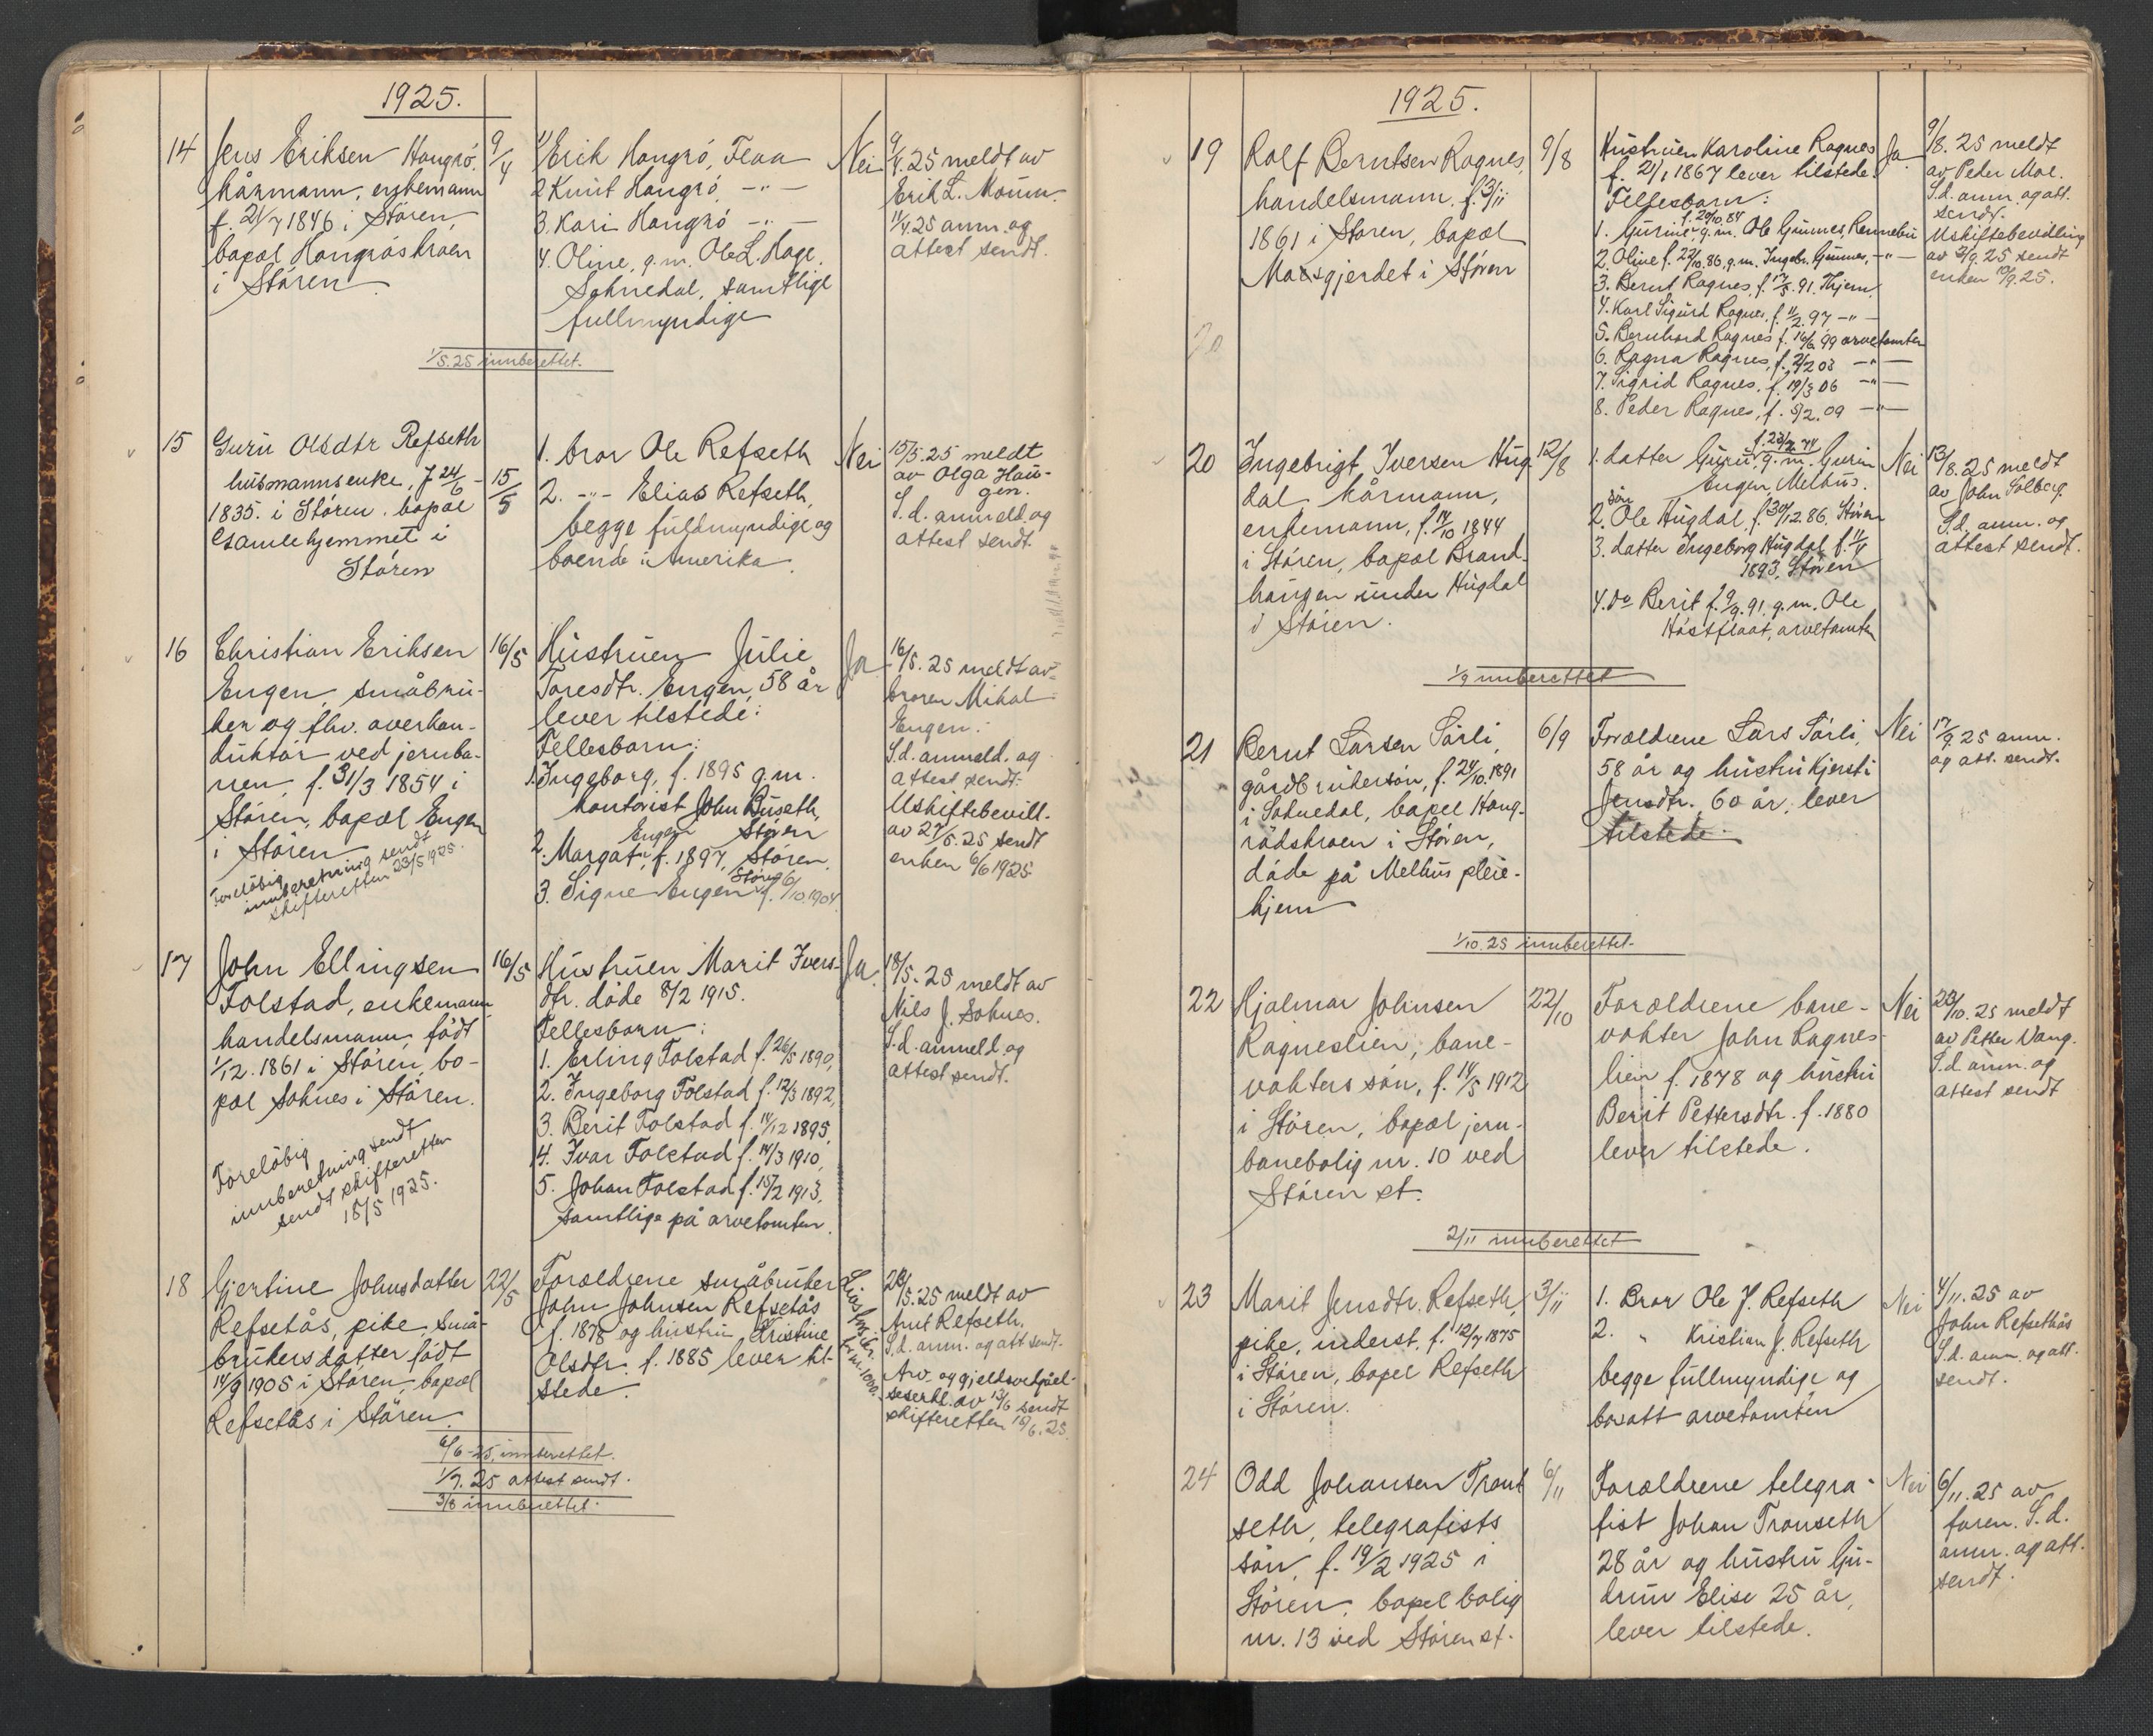 1925.
14 Jens Eriksen Haugrø. 9/4
kårmann, enkemann
f. 21/7 1846 i Støren,
bopæl Haugrøskroen
i Støren
1/ Erik Haugrø, Flaa
2 Knut Haugrø, -"-
3. Kari Haugrø -"-
4. Oline, g.m. Ole L. Hage,
Soknedal, samtlige
fullmyndige
Nei
9/4. 25 meldt av
Erik L. Moum.
11/4. 25 anm. og
attest sendt.
1/5. 25 innberettet.
15 Guru Olsdtr Refseth 15/5
husmannsenke, f 24/6 -
1835. i Støren. bopæl
Gamlehjemmet i
Støren
1. bror Ole Refseth
2. -"- Elias Refseth,
begge fuldmyndige og
boende i Amerika.
Nei
15/5. 25 meldt
av Olga Hau-
gen.
S.d. anmeld. og
attest sendt.
16 Christian Eriksen 16/5
Engen, småbru-
ker og fhv. overkon-
duktør ved jernba-
nen, f. 31/3 1854 i
Støren, bopæl Engen
i Støren
Foreløbig
innberetning sendt
skifteretten 23/5 1925.
Hustruen Julie
Toresdtr. Engen, 58 år
lever tilstede:
Fellesbarn:
1. Ingeborg, f. 1895 g.m.
kontorist John Buseth,
Støren
2. Margat Engen, f. 1897, Støren
3. Signe Engen, Støren f. 6/10 1904
Ja
16/5. 25 meldt av
broren Mikal
Engen.
S.d. anmeld. og
attest sendt.
Uskiftebevill.
av 27/5. 25 sendt
enken 6/6 1925
17 John Ellingsen 16/5
Folstad, enkemann
handelsmann, født
1/12. 1861 i Støren, bo-
pæl Soknes i Støren.
Foreløbig
innberetning sendt
sendt skifteretten
18/5 1925.
Hustruen Marit Ivers-
dtr. døde 8/2 1915.
Fellesbarn:
1. Erling Folstad f. 26/5 1890,
2. Ingeborg Folstad f. 12/3 1892,
3. Berit Folstad f. 14/12 1895,
4. Ivar Folstad f. 14/3 1910,
5. Johan Folstad f. 15/2 1913,
samtlige på arvetomten.
Ja.
18/5. 25 meldt av
Nils J. Soknes.
S.d. anmeld. og
attest sendt.
18 Gjertine Johnsdatter 22/5
Refsetås, pike, små-
brukersdatter født
14/9 1905 i Støren, bopæl
Refsetås i Støren.
Forældrene småbruker
John Johnsen Refsetås
f. 1878 og hustru Kristine
Olsdtr. f. 1885 lever til-
stede.
23/5. 25 meldt av
Arnt Refseth.
S.d. anm. og att sendt.
Arv. og gjeldsvedgåel-
seserkl. av 12/6 sendt
skifteretten 18/6. 25.
6/6-25, innberettet.
1/7. 25 attest sendt.
3/8 innberettet.
1925.
19 Rolf Berntsen Rognes, 9/8
handelsmann. f. 3/11
1861 i Støren, bopæl
Moøsgjerdet i Støren
Hustruen Karoline Rognes
f. 21/1 1867 lever tilstede.
Fellesbarn:
1. Gurine, f. 20/10 84 g.m. Ole Gunnes, Rennebu
2. Oline f. 22/10. 86, g.m. Ingebr. Gunnes, -"-
3. Bernt Rognes, f. 17/5. 91. Hjem.
4. Karl Sigurd Rognes, f. 11/2. 97 -"-
5. Bernhard Rognes f. 16/6 99 arvetomten
6. Ragna Rognes, f. 2/2 03 -"-
7. Sigrid Rognes, f. 19/3 06 -"-
8. Peder Rognes, f. 5/2. 09 -"-
Ja
9/8. 25 meldt
av Peder Moe.
S.d. anm. og att.
sendt.
Uskiftebevilling
av 2/9. 25 sendt
enken 10/9. 25.
20
20 Ingebrigt Iversen Hug- 12/8
dal, kårmann,
enkemann, f. 14/10 1844
i Støren, bopæl Brand-
haugen under Hugdal
i Støren.
1. datter Guru, f. 23/2 74 g.m. Gurin
Engen, Melhus.
2. søn Ole Hugdal, f. 30/12. 86, Støren
3. datter Ingeborg Hugdal f. 11/4
1893, Støren
4. do Berit f. 9/9. 91, g.m. Ole
Høstflaat, arvetomten
Nei
13/8. 25 meldt
av John Solberg.
S.d. anm. og
attest sendt.
1/9 innberettet
21 Bernt Larsen Sørli, 6/9
gårdbrukersøn, f. 24/10. 1891
i Soknedal, bopæl Haug-
rødskroen i Støren,
døde på Melhus pleie-
hjem
Forældrene Lars Sørli,
58 år og hustru Kjersti
Jensdtr. 60 år, lever
tilstede.
Nei
17/9. 25 anm.
og att. sendt.
1/10. 25 innberettet.
22 Hjalmar Johnsen 22/10
Rogneslien, bane-
vokters søn, f. 14/5 1912
i Støren, bopæl jern-
banebolig nr. 10 ved
Støren st.
Forældrene bane-
vokter John Rognes-
lien f. 1878 og hustru
Berit Pettersdtr. f. 1880
lever tilstede.
Nei
23/10. 25 meldt
av Petter Vang.
S.d. anm. og
attest sendt
2/11 innberettet
23 Marit Jensdtr. Refseth, 3/11
pike, inderst. f. 12/7 1875
i Støren, bopæl Refseth
i Støren.
1. Bror Ole J. Refseth
2. " Kristian J. Refseth
begge fullmyndige og
bosatt arvetomten
Nei
4/11. 25 av
John Refsethås
S.d. anm. og att.
sendt.
24 Odd Johansen Tront 6/11
seth, telegrafists
søn, f. 19/2 1925 i
Støren, bopæl bolig
nr. 13 ved Støren st.
Forældrene telegra-
fist Johan Tronseth
28 år og hustru Gu-
drun Elise 25 år,
lever tilstede.
Nei
6/11. 25 av
faren. S.d.
anm. og att.
sendt.